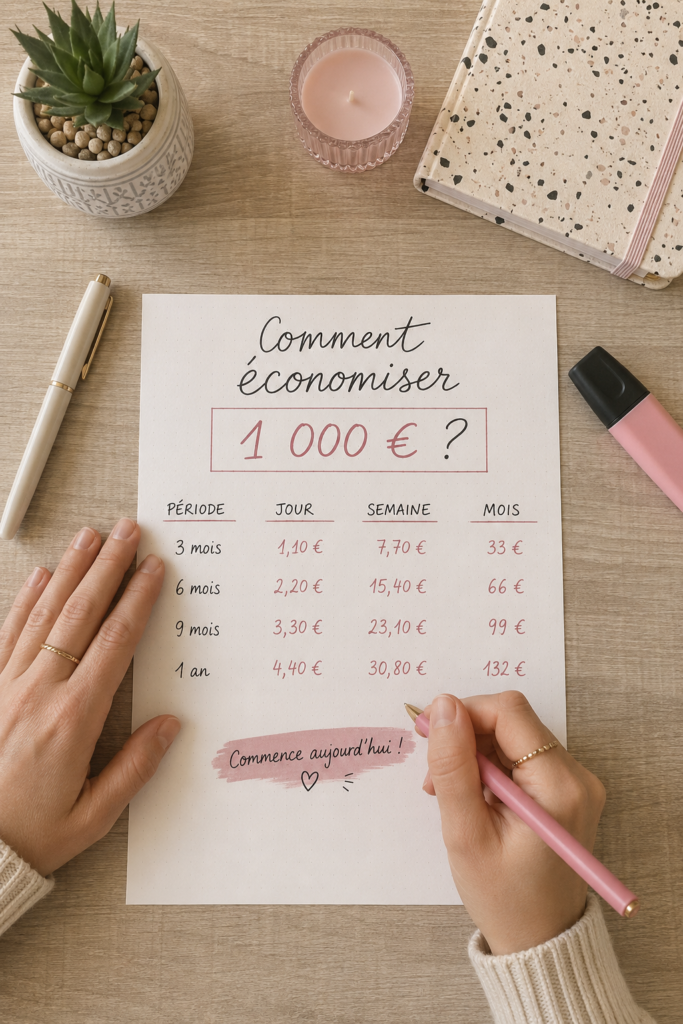 Comment
économiser
1 000 € ?
PÉRIODE JOUR SEMAINE MOIS
3 mois 1,10 € 7,70 € 33 €
6 mois 2,20 € 15,40 € 66 €
9 mois 3,30 € 23,10 € 99 €
1 an 4,40 € 30,80 € 132 €
Commence aujourd'hui !